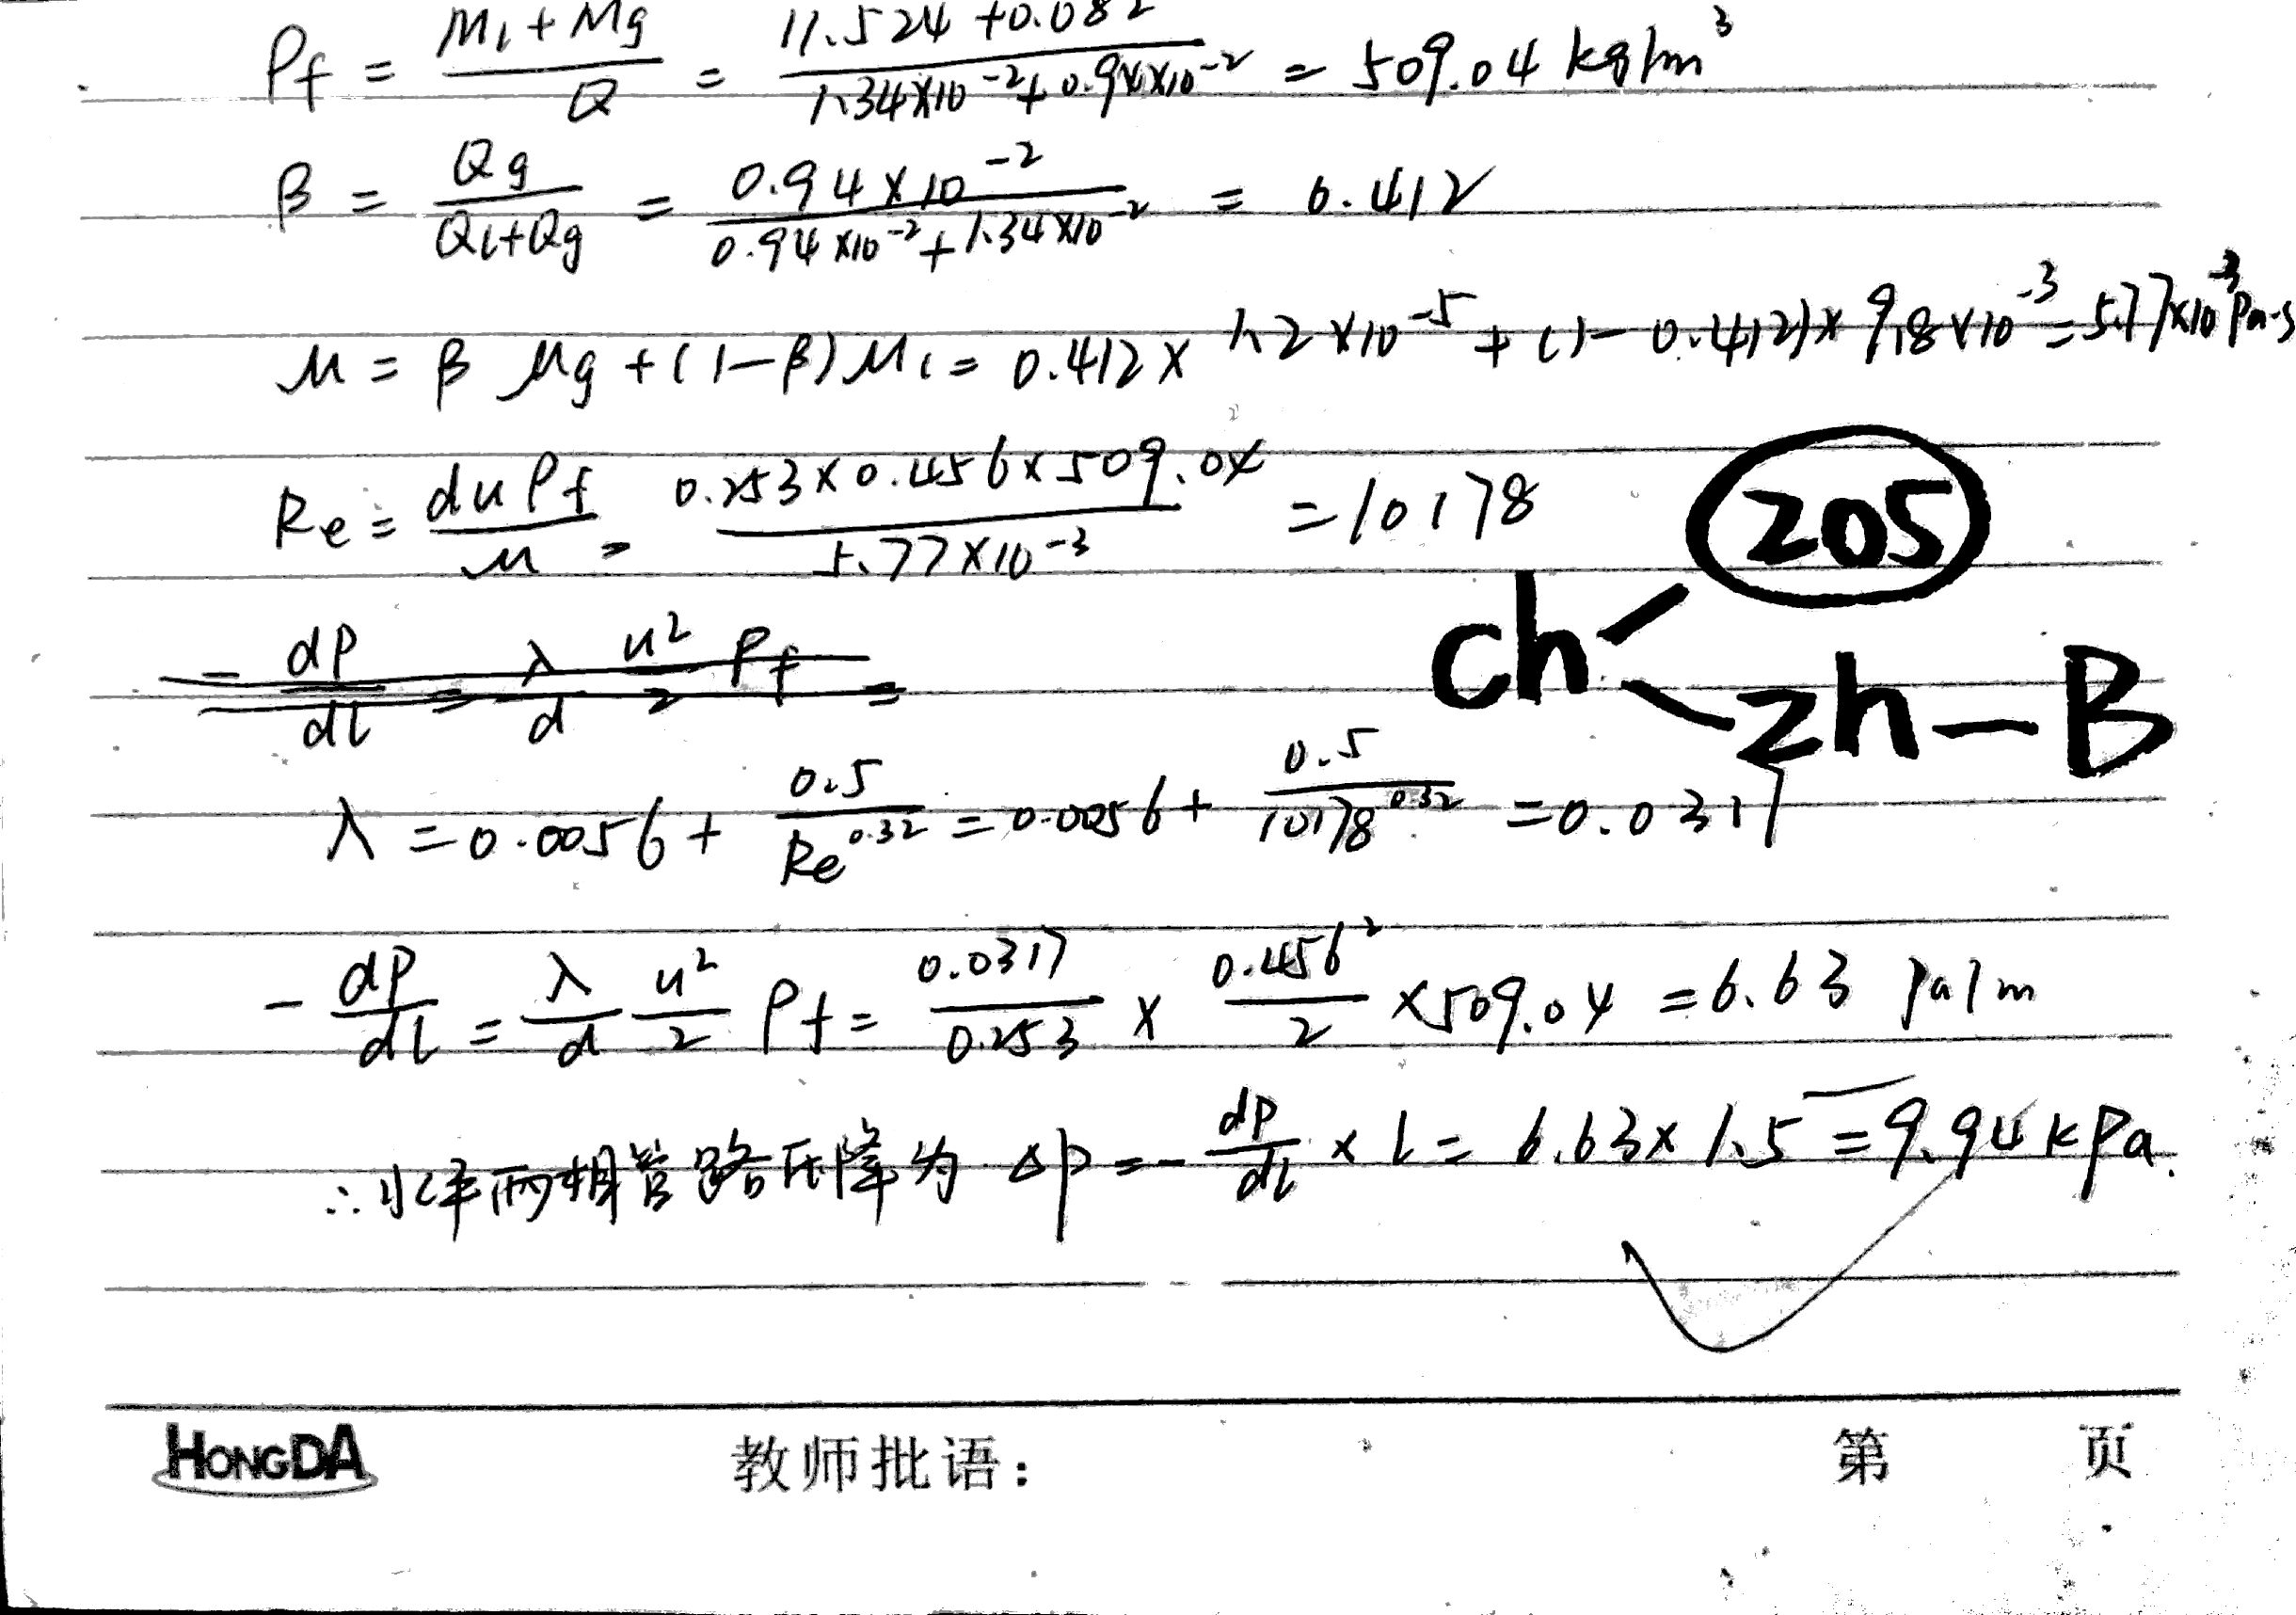 ρf = (M₁+Mg)/Q = (11.524+0.082)/(1.34×10⁻²+0.94×10⁻²) = 509.04 kg/m³
β = Qg/(Ql+Qg) = (0.94×10⁻²)/(0.94×10⁻²+1.34×10⁻²) = 0.412
μ = β μg + (1-β)μl = 0.412× 1.2×10⁻⁵ + (1-0.412)×9.8×10⁻³ = 5.77×10⁻³ Pa·s
Re = duρf/μ = (0.253×0.456×509.04)/(5.77×10⁻³) = 10178
205
ch
zh-B
-dP/dl = λ/d u²/2 ρf =
λ = 0.0056 + 0.5/Re^0.32 = 0.0056 + 0.5/10178^0.32 = 0.0317
-dP/dl = λ/d u²/2 ρf = 0.0317/0.253 × 0.456²/2 ×509.04 = 6.63 Pa/m
∴水平两相管路压降为 ΔP = -dP/dl × l = 6.63×1.5 = 9.94 kPa.
HONGDA 教师批语: 第 页